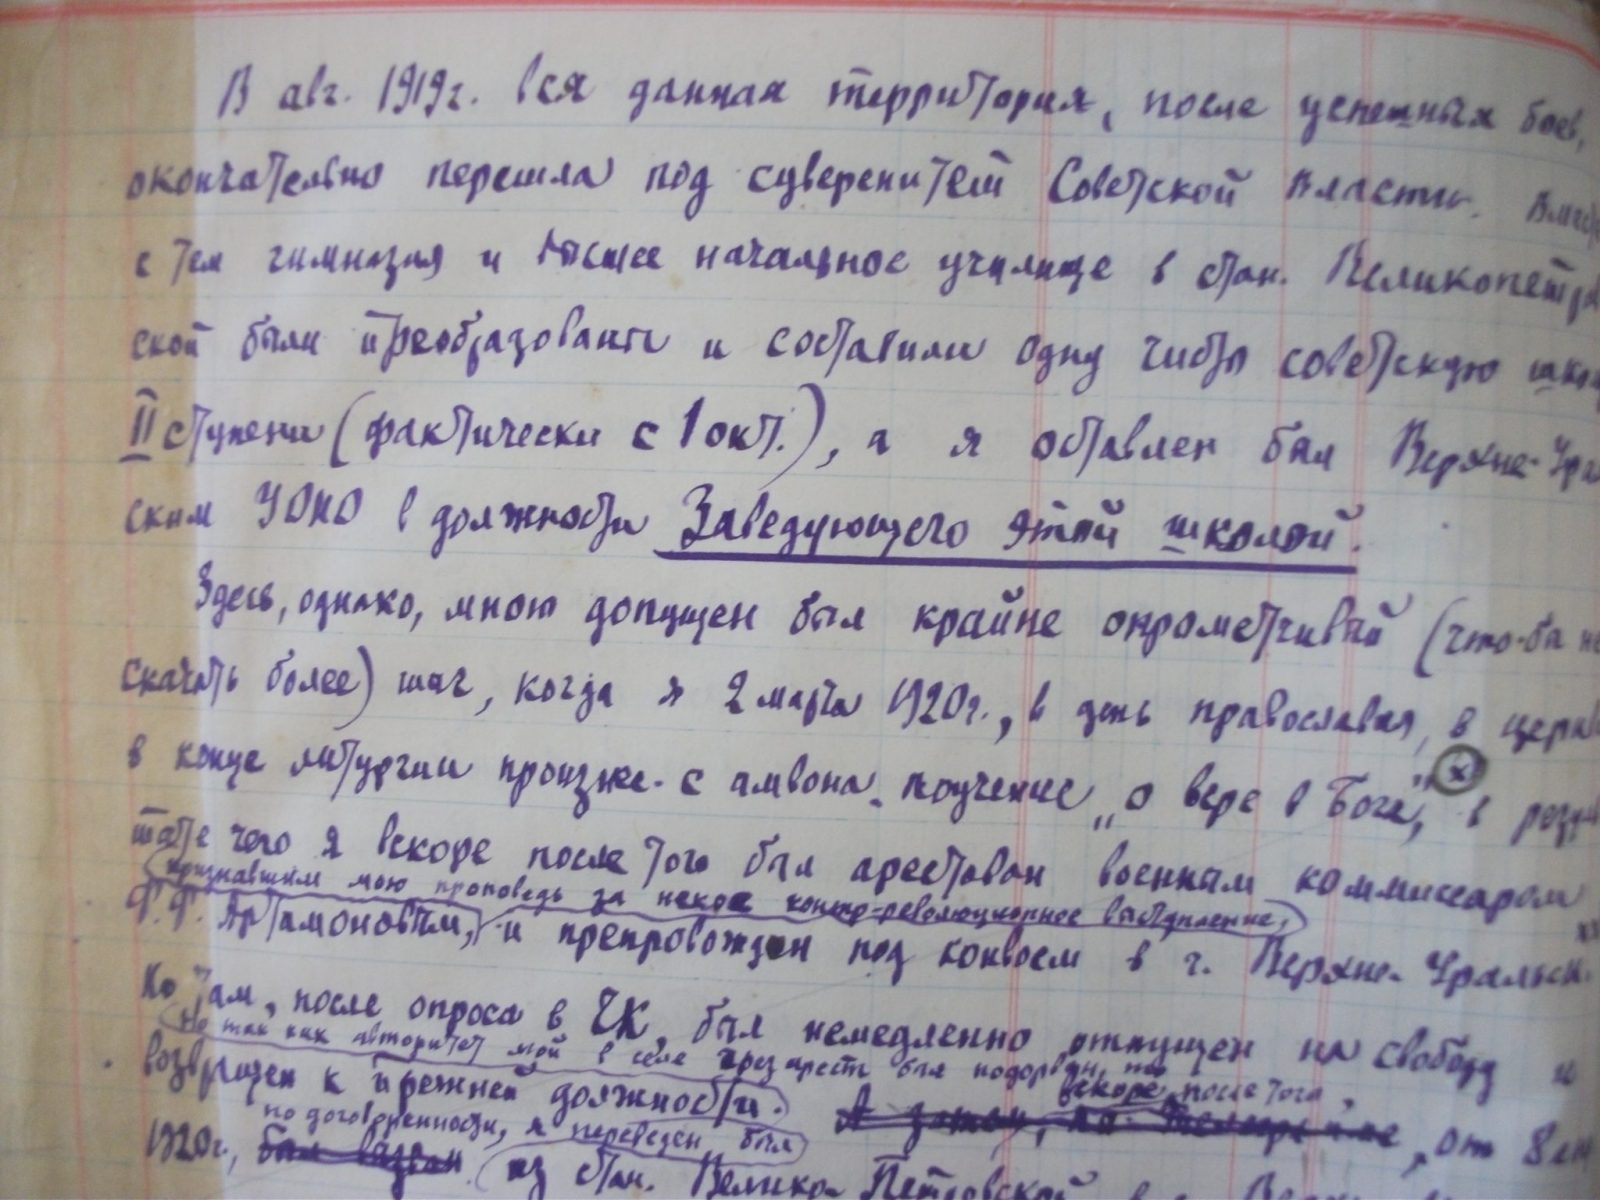 В авг. 1919г. вся данная территория, после успешных боев,
окончательно перешла под суверенитет Советской власти.
с тем гимназия и высшее начальное училище в стан. Великопетр
ской были преобразованы и составили одну чисто советскую шко
II ступени (фактически с 1 окт.), а я оставлен был Верхне-Ура
ским УОНО в должности Заведующего этой школой.
Здесь, однако, мною допущен был крайне опрометчивый (что-бы не
сказать более) шаг, когда я 2 марта 1920г., в день православия, в церкв
в конце литургии произнес с амвона поучение „о вере в Бога", (x) в резуль
тате чего я вскоре после того был арестован военным коммиссаром
признавшим мою проповедь за некое контр-революционное выступление,
Ф.Ф. Артамоновым, и препровожден под конвоем в г. Верхне-Уральск.
Но там, после опроса в ЧК, был немедленно отпущен на свободу и
Но так как авторитет мой в селе чрез арест был подорван, то
возвращен к прежней должности.
вскоре после того,
по договоренности, я переведен был
1920г., был из стан. Велико-Петровской в г.